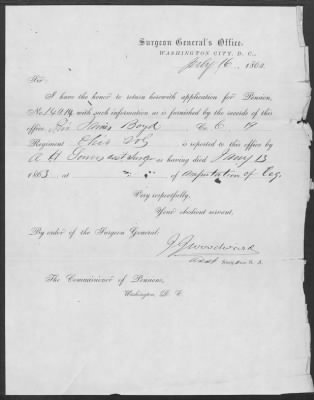 Surgeon General's Office,
WASHINGTON CITY, D. C.,
July 16, 186
Sir:
I have the honor to return herewith application for Pension,
No. 14414, with such information as is furnished by the records of this
office. James Boyd Co. E. 19
Regiment Ohio Vols is reported to this office by
A H asst Surg as having died Jany 13
1863, at " " of Amputation of Leg.
Very respectfully,
Your obedient servant,
By order of the Surgeon General:
J J Woodward
Asst Surgeon U. S. A.
The Commissioner of Pensions,
Washington, D. C.